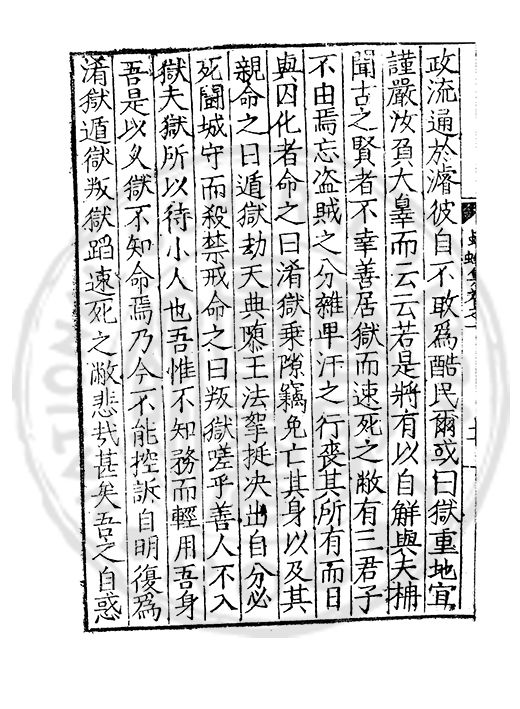 政流通於濬彼自不敢爲酷民爾或曰獄重地宜
謹嚴汝負大辠而云云若是將有以自解與夫捅
聞古之賢者不幸善居獄而速死之敝有三君子
不由焉忘盗賊之分雜卑汗之行喪其所有而日
與囚化者命之曰淆獄乗隙竊免亡其身以及其
親命之曰遁獄劫天典隳王法挐挻决出自分必
死鬪城守而殺禁戒命之曰叛獄嗟乎善人不入
獄夫獄所以待小人也吾惟不知務而輕用吾身
吾是以入獄不知命焉乃今不能控訴自明復爲
淆獄遁獄叛獄蹈速死之敝悲㢤甚矣吾之自惑